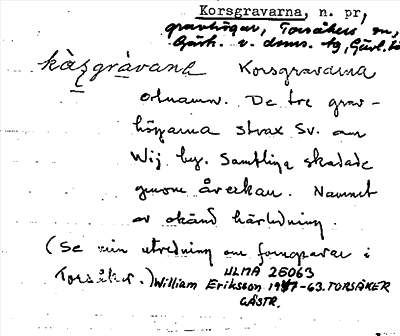 Korsgravarna, n. pr,
gravhögar, Torsåkers sn,
Gästr. ö. doms. tg, Gävl. l.
Korsgravarna
ortnamn. De tre grav-
högarna strax Sv. om
Wij by. Samtliga skadade
genom åverkan. Namnet
av okänd härledning.
(Se min utredning om forngravar i
Torsåker.) William Eriksson 1947-63. TORSÅKER
ULMA 25063
GÄSTR.